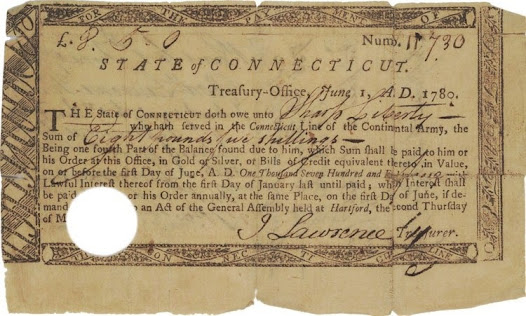 FOR THE PAYMENT OF
£. 8. 5. 0 Numb. 11,730
STATE of CONNECTICUT.
Treasury-Office, June 1, A.D. 1780.
THE State of CONNECTICUT doth owe unto Sharp Liberty
who hath served in the Connecticut Line of the Continental Army, the
Sum of Eight pounds five shillings
Being one fourth Part of the Balance found due to him, which Sum shall be paid to him or
his Order at this Office, in Gold or Silver, or Bills of Credit equivalent thereto in Value,
on or before the first Day of June, A. D. One Thousand Seven Hundred and
Lawful Interest thereof from the first Day of January last until paid; which Interest shall
be paid or his Order annually, at the same Place, on the first Day of June, if de-
mand an Act of the General Assembly held at Hartford, the second Thursday
of M
J Lawrence Treasurer.
LINE